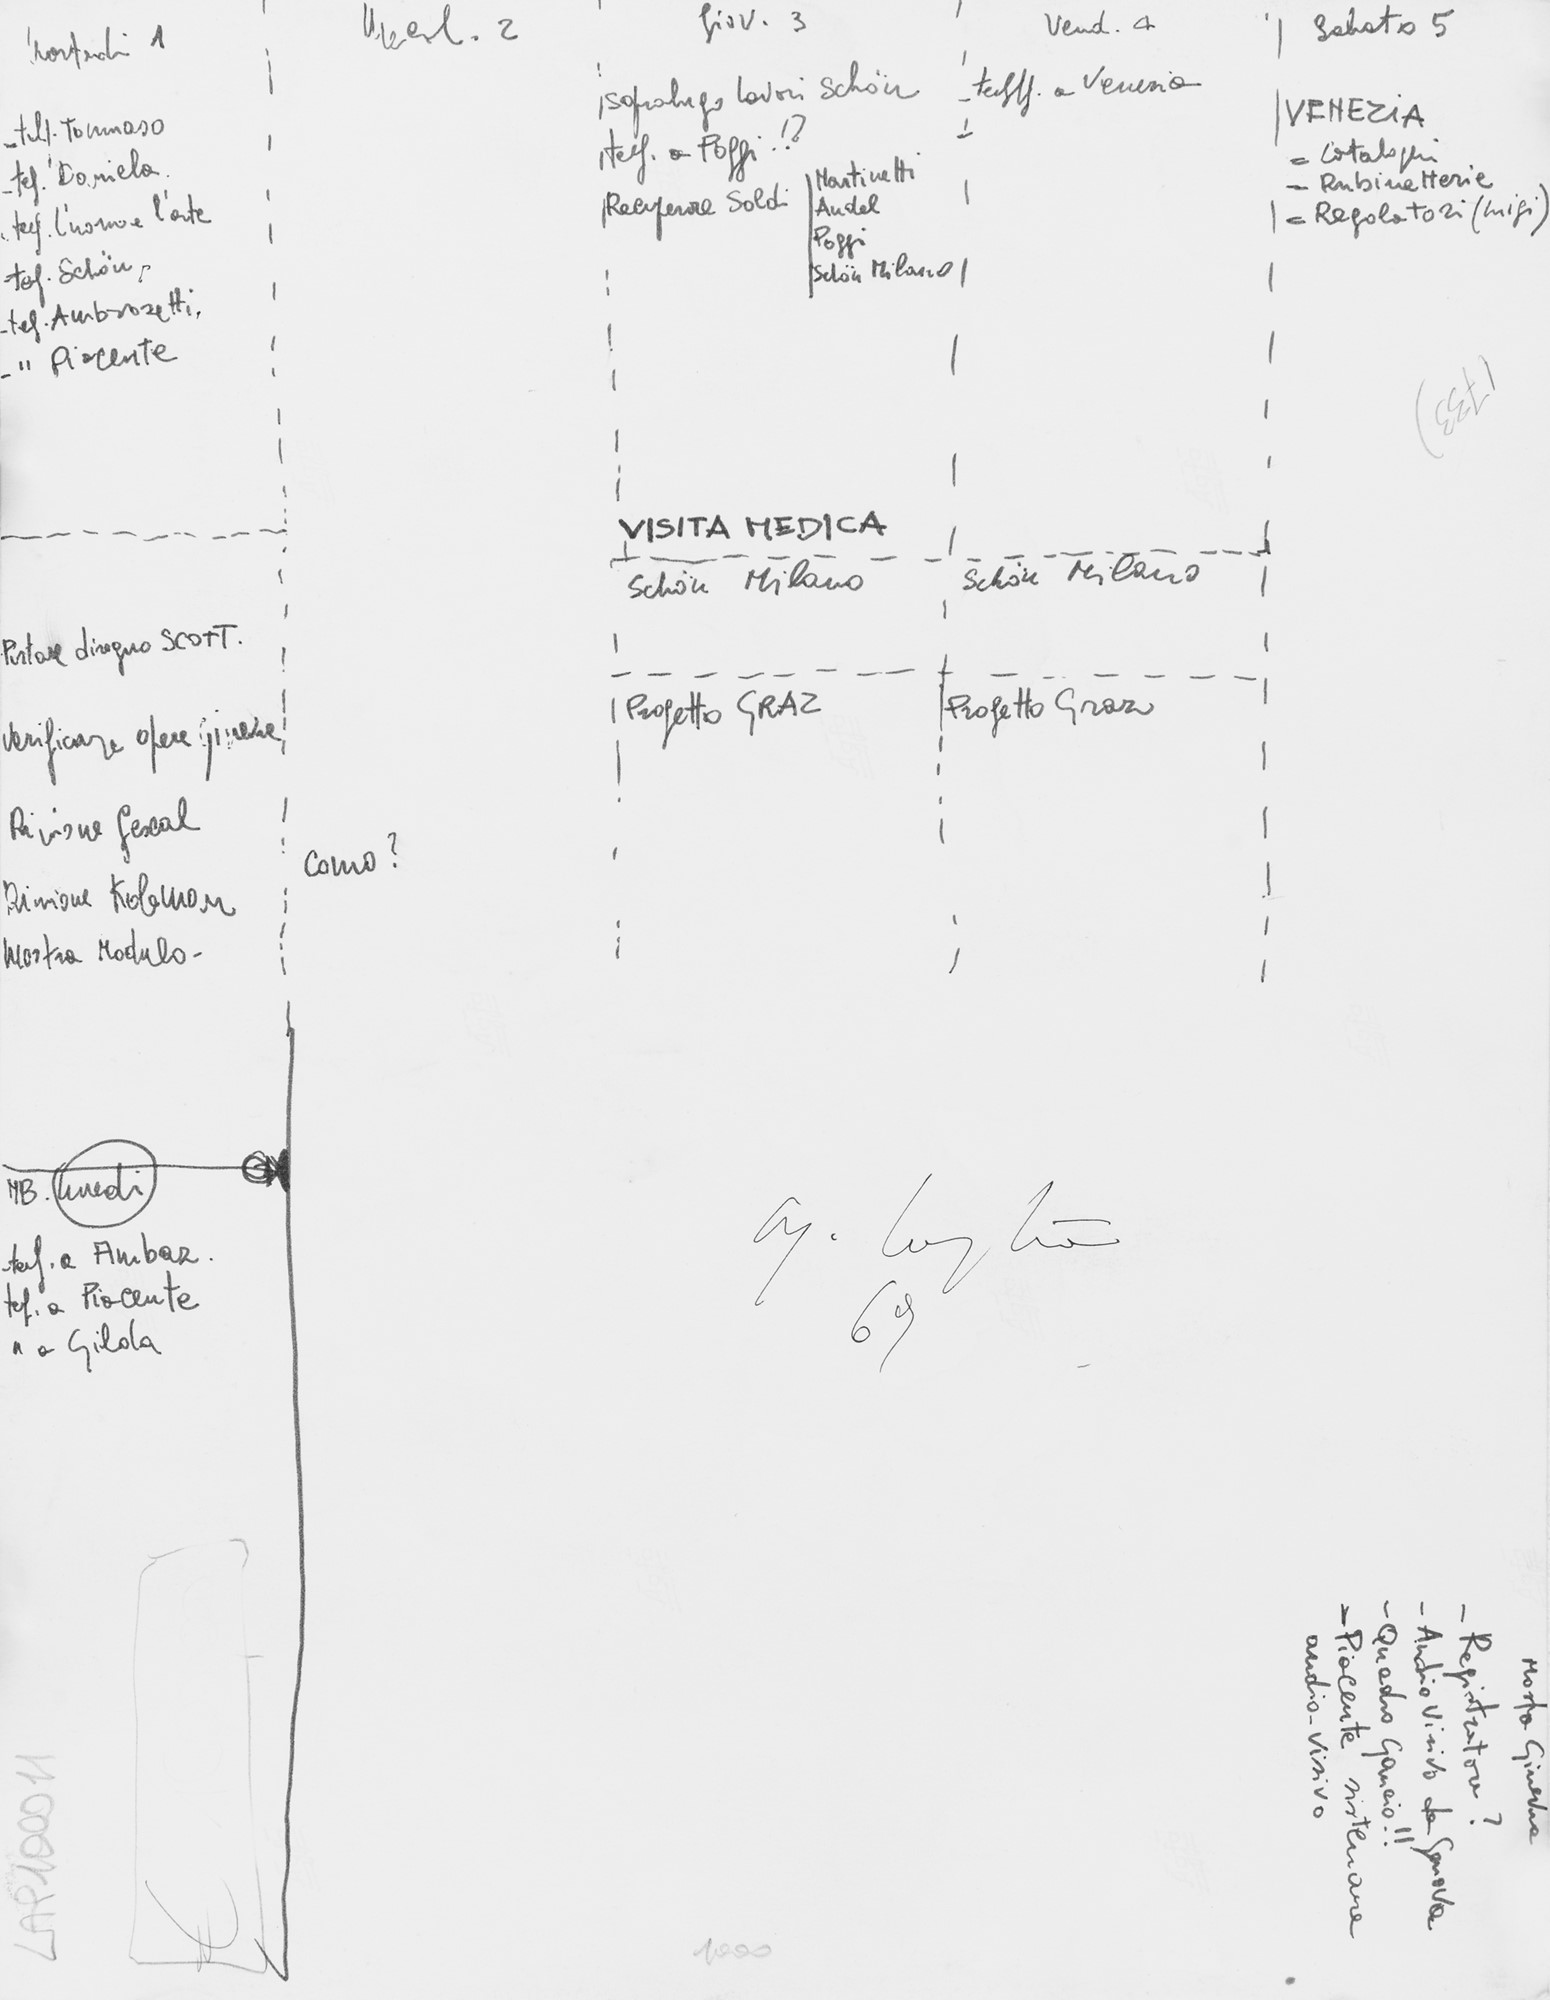 Martedì 1
- tel. Tommaso
- tel. Daniela.
- tel. l'uomo e l'arte
- tel. Schön,
- tel. Ambrosetti,
- " Piacente
Portare disegno SCOTT.
Verificare opere
Riunione Gescal
Riunione Koleman
Mostra Modulo -
NB. lunedì
- tel. a Ambaz.
tel. a Piacente
" a Gilda
Mercol. 2
Como?
Giov. 3
Sopraluogo lavori Schön
tel. a Poggi !?
Recuperare Soldi
Martinetti
Audel
Poggi
Schön Milano
VISITA MEDICA
Schön Milano
Progetto GRAZ
Vend. 4
- teff. a Venezia
Schön Milano
Progetto Graz
Sabato 5
VENEZIA
= Cataloghi
- Rubinetterie
= Regolatori (Luigi)
(733)
69
Mostra Ginevra
- Registratore?
- Audiovisivo da Genova
- Quadro Gancio!!
- Piacente sistemare
audio-visivo
LAP100011
1000